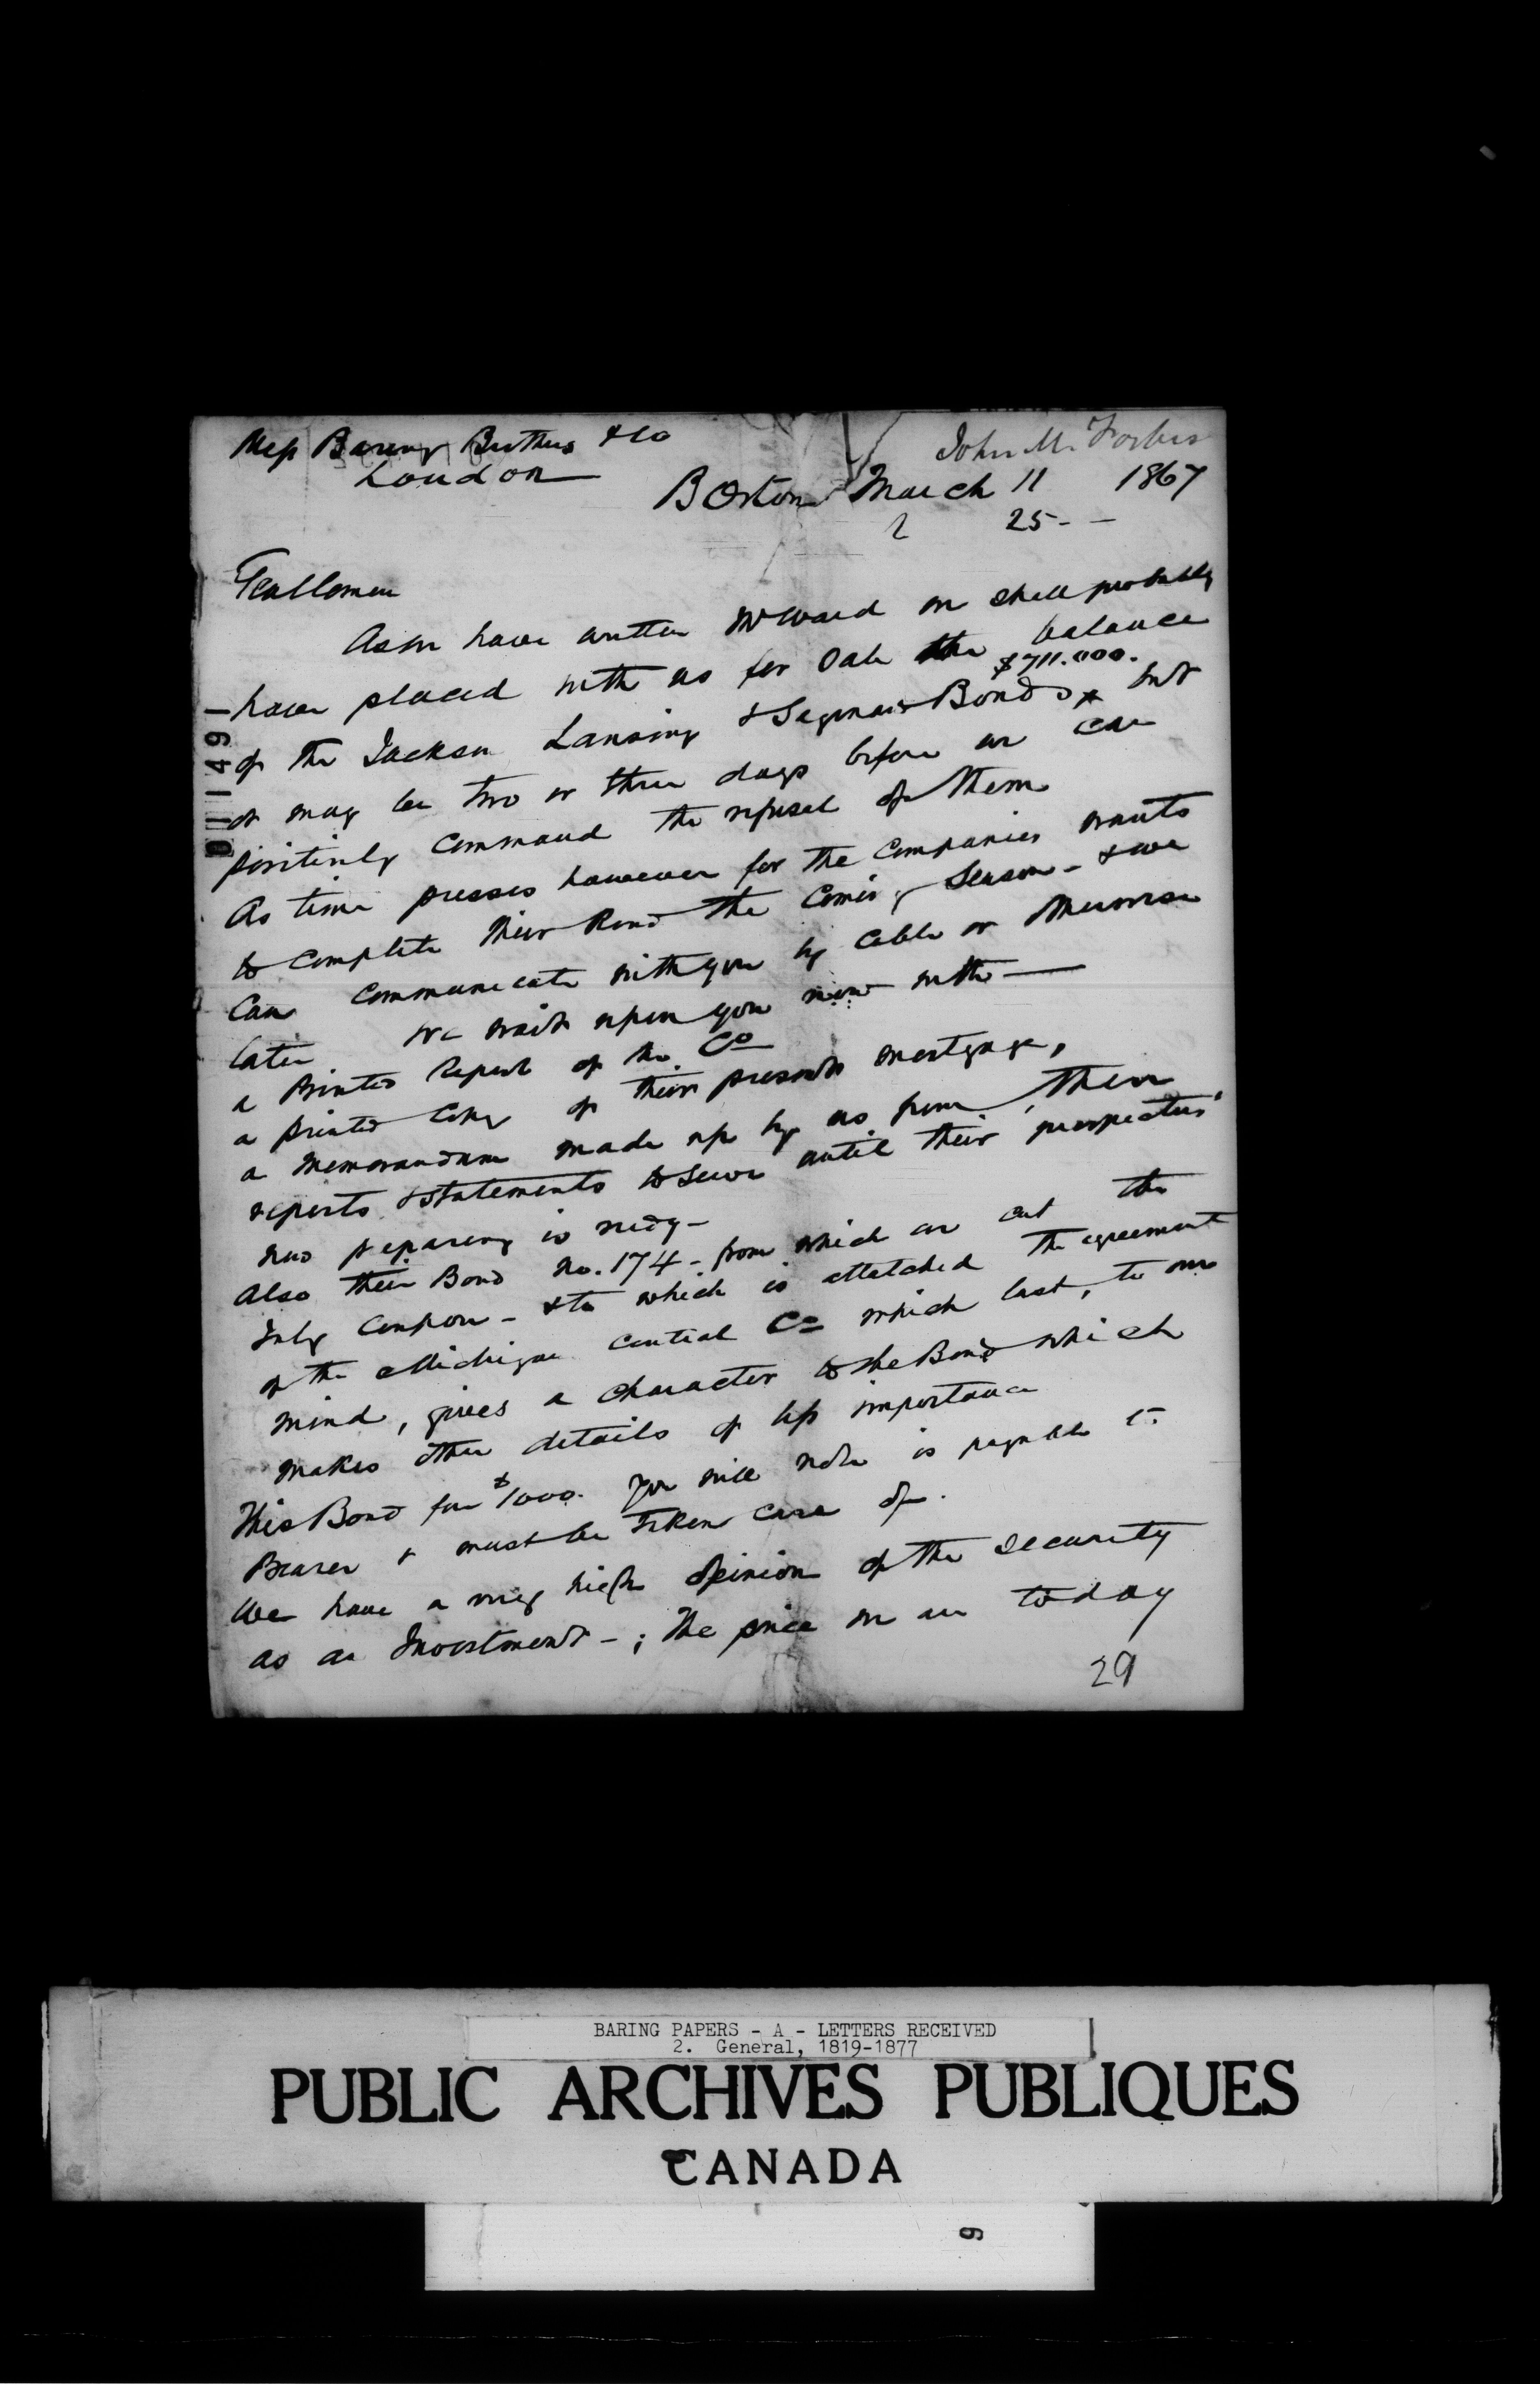 Mess Baring Brothers & Co
London
John M. Forbes
Boston March 11 1867
25 - -
Gentlemen
As we have written Mr Ward we shall probably
have placed with us for Sale the balance
$711.000.
of the Jackson Lansing & Saginaw Bonds x but
it may be two or three days before we can
positively command the refusal of them
As time presses however for the Companies wants
to complete their Road the coming Season - & we
can communicate with you by cable or otherwise
later we wait upon you now with —
a Printed Report of the Co
a printed Copy of their present mortgage,
a memorandum made up by us from their
reports & statements to serve until their 'prospectus'
now preparing is redy -
Also their Bond No. 174 - from which we cut the
July Coupon - & to which is attatched the agreement
of the Michigan Central Co which last, to our
mind, gives a character to the Bond which
makes other details of less importance
This Bond for $1000. you will note is payable to
Bearer & must be taken care of.
We have a very high opinion of the security
as an Investment - ; The price we are today
29
001491
BARING PAPERS - A - LETTERS RECEIVED
2. General, 1819-1877
PUBLIC ARCHIVES PUBLIQUES
CANADA
9